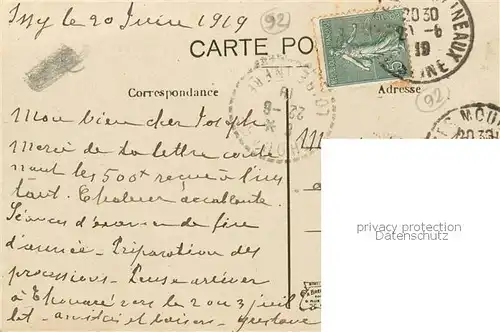 Issy le 20 Juin 1919
92
CARTE PO
Correspondance
Adresse
92
Mon bien cher Joseph
Merci de ta lettre
nant les 500+ recue à l'ins
tant. Chaleur accablante.
Séances d'examen de fin
d'année - Préparation des
processions. Pense arriver
à Thouaré vers le 2 ou 3 juil
let - amitiés et baisers - Gustave
privacy protection
Datenschutz